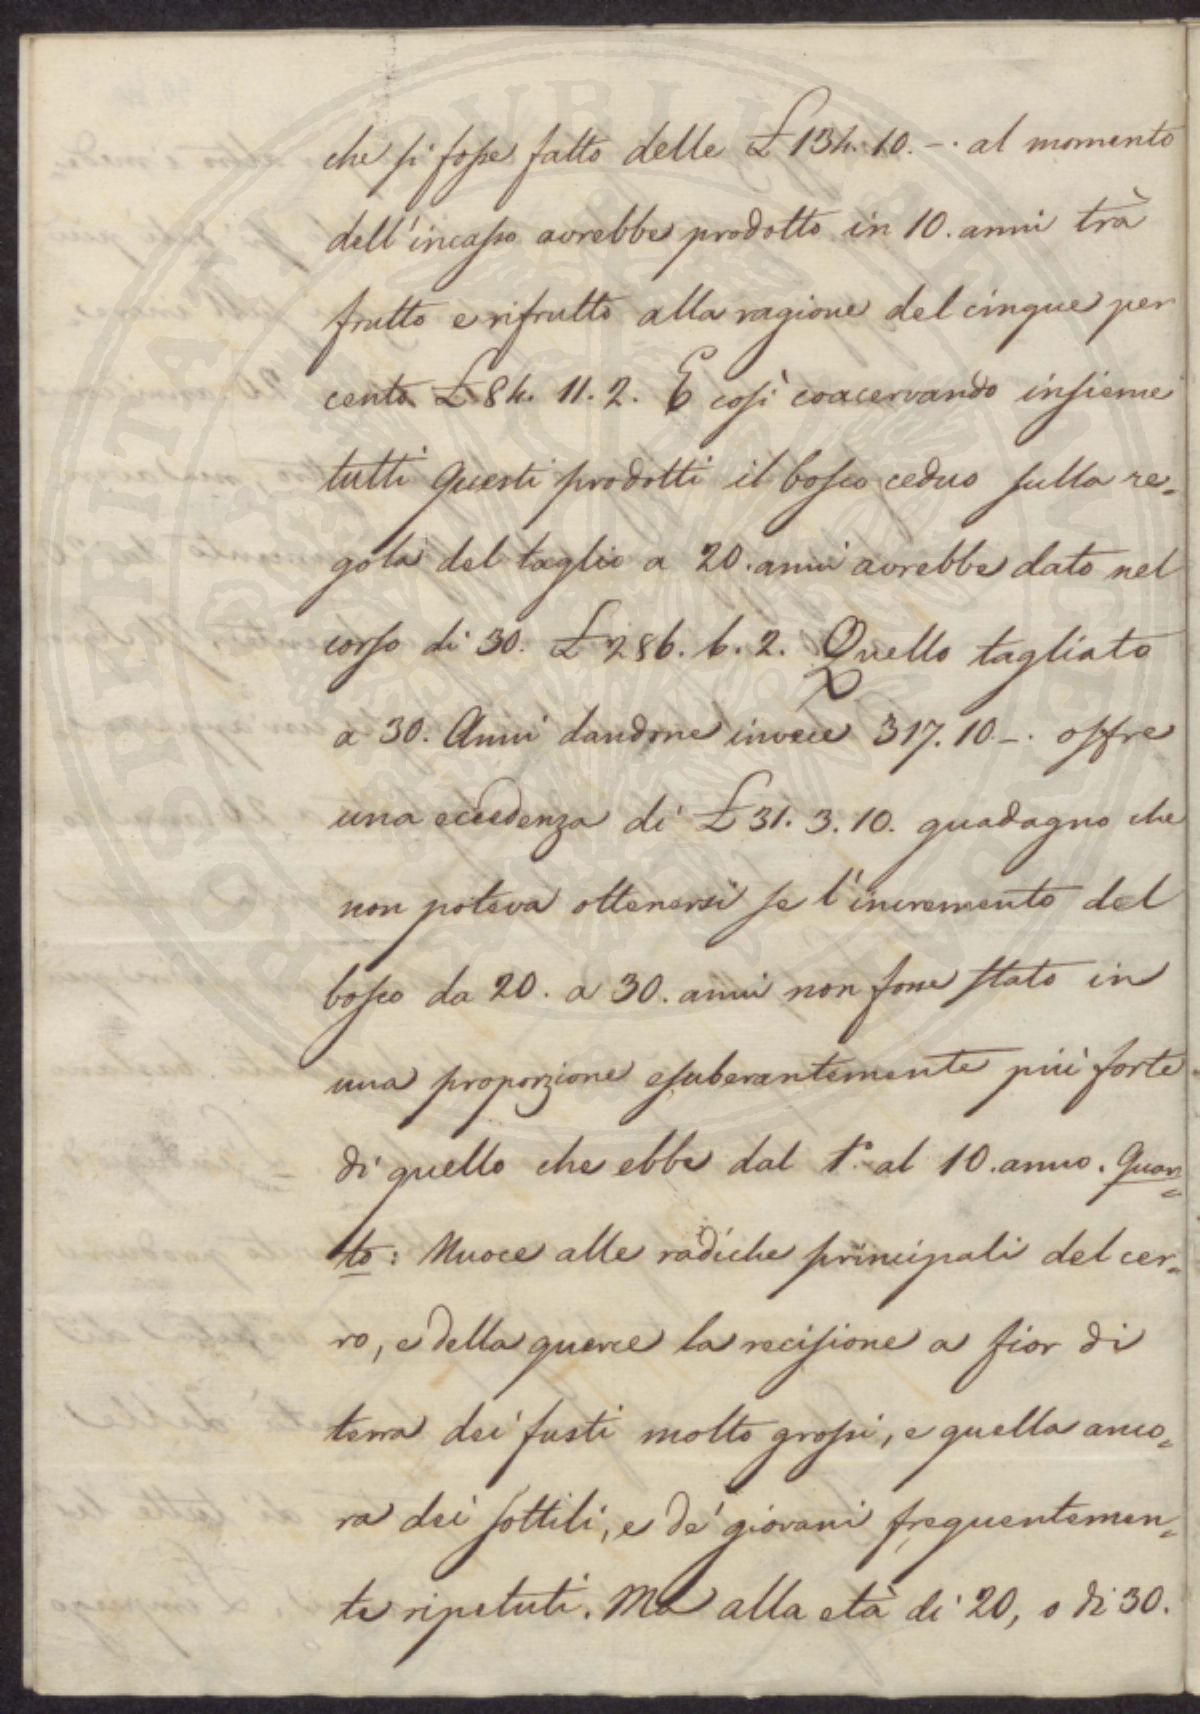 che si fosse fatto delle £ 134. 10. –. al momento
dell'incasso avrebbe prodotto in 10. anni trà
frutto e rifrutto alla ragione del cinque per
cento £ 84. 11. 2. E così coacervando insieme
tutti questi prodotti il bosco ceduo sulla re=
gola del taglio a 20. anni avrebbe dato nel
corso di 30. £ 286. 6. 2. Quello tagliato
a 30. Anni dandone invece 317. 10 –. offre
una eccedenza di £ 31. 3. 10. guadagno che
non poteva ottenersi se l'incremento del
bosco da 20. a 30. anni non fosse stato in
una proporzione esuberantemente più forte
di quello che ebbe dal 1° al 10. anno. Quar=
to: Nuoce alle radiche principali del cer=
ro, e della querce la recisione a fior di
terra dei fusti molto grossi, e quella anco=
ra dei sottili, e de' giovani frequentemen=
te ripetuti. Ma alla età di 20, o di 30.